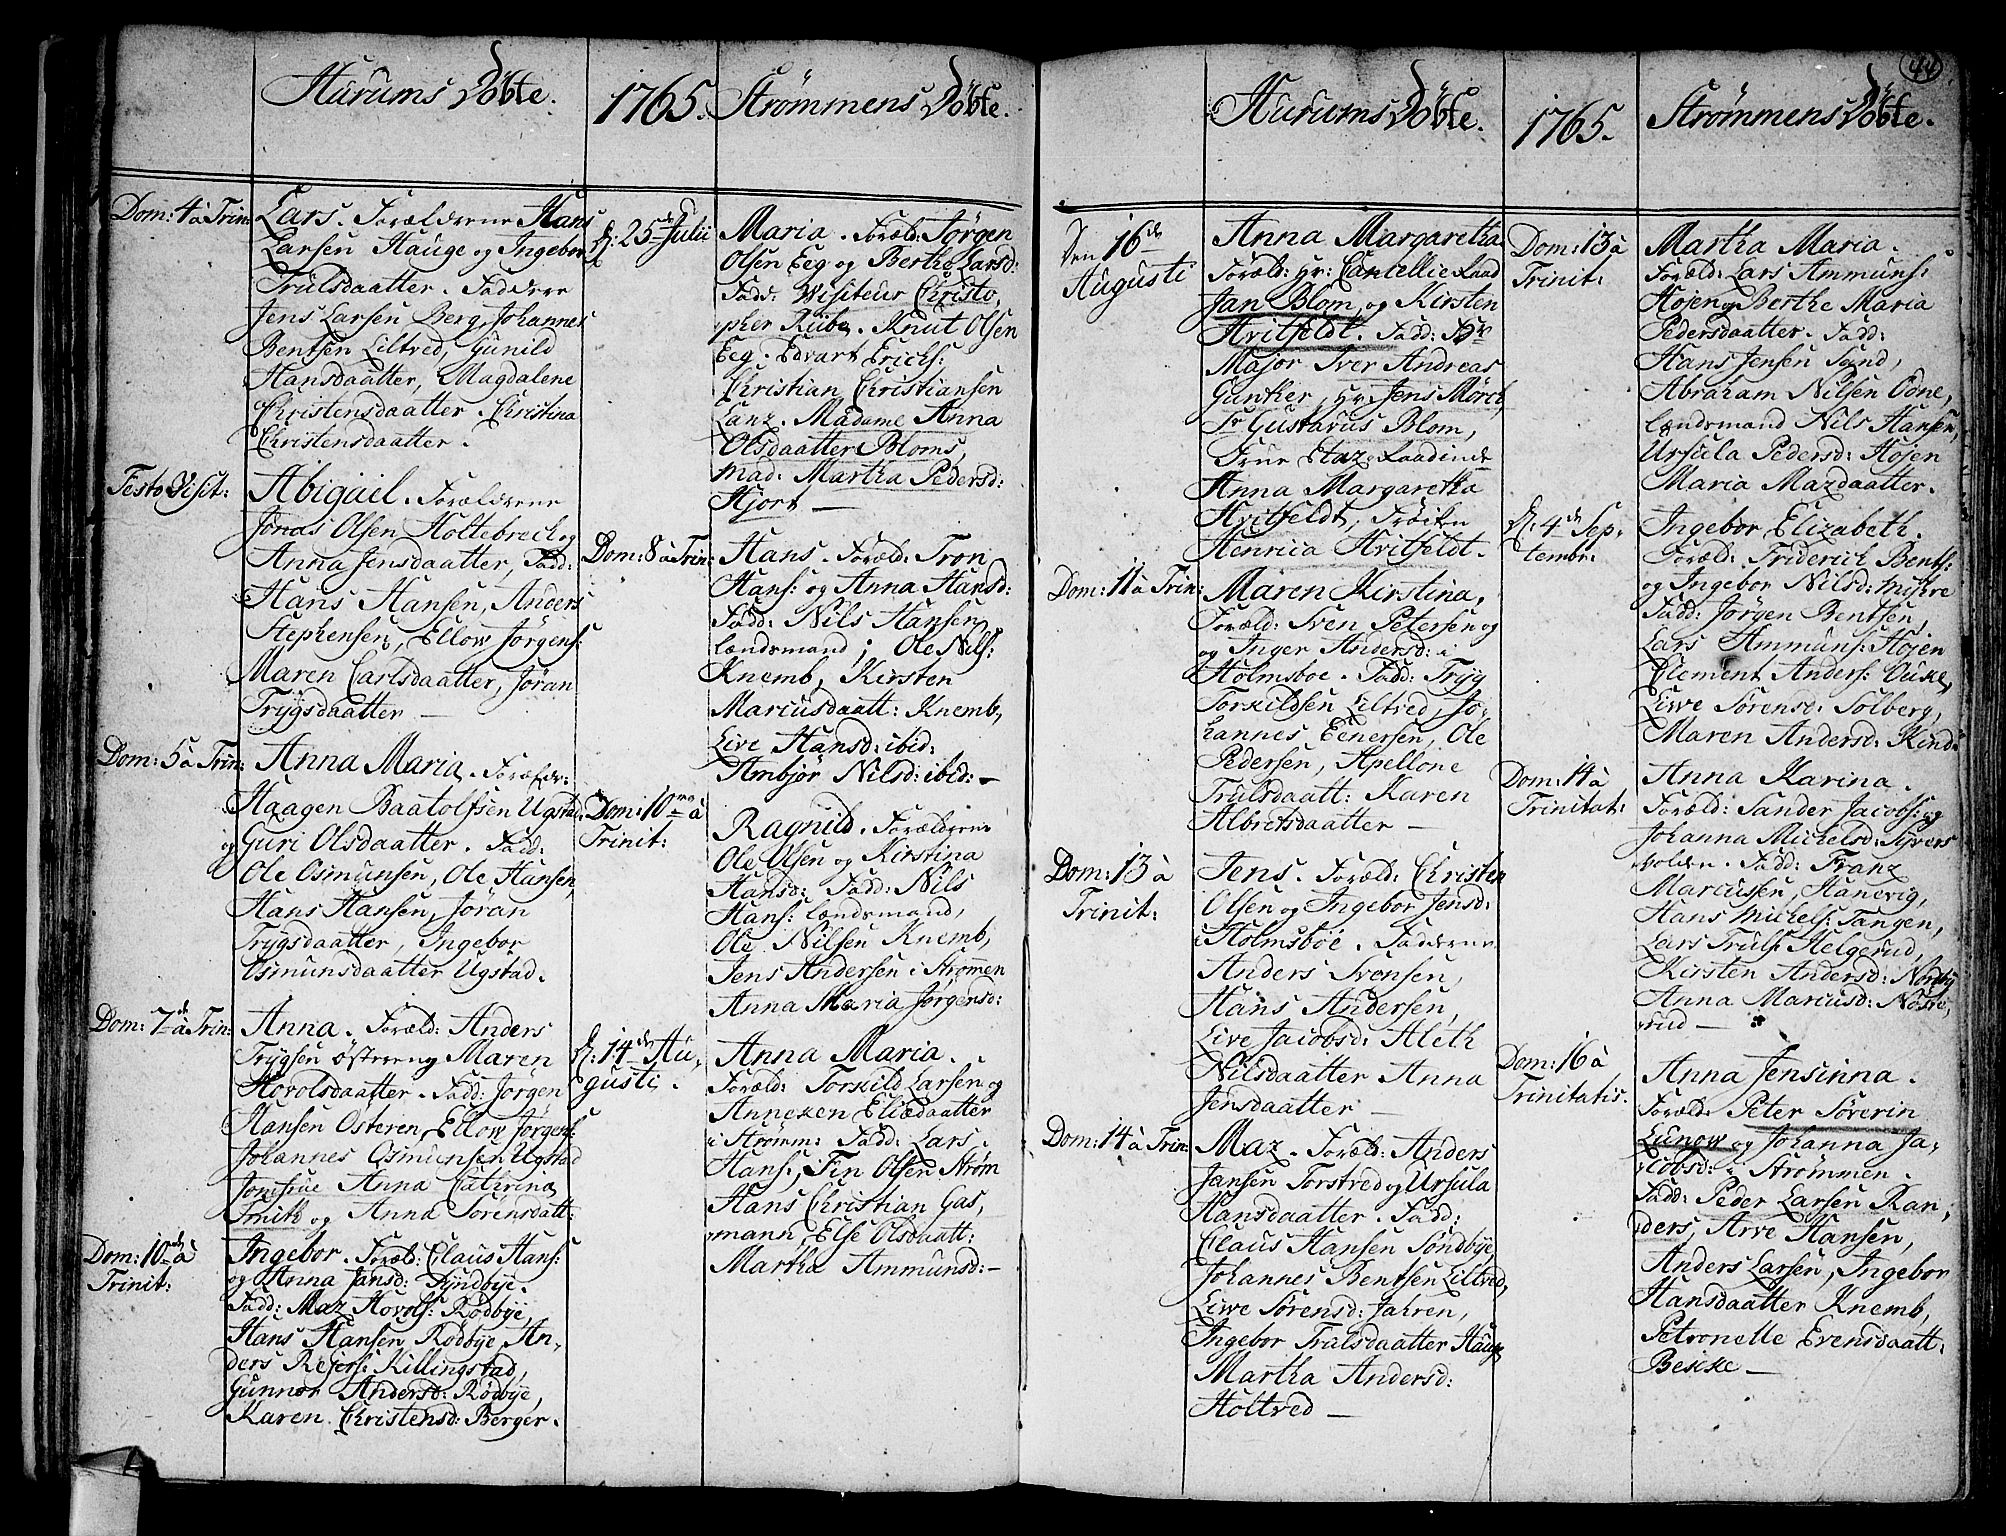 Hurums Döbte.
Dom: 4 à Trin:
Lars. Forælderne Hans
Larsen Hauge og Ingebor
Trulsdaatter. Fadderne
Jens Larsen Berg, Johannes
Bentsen Liltved, Gunild
Hansdaatter, Magdalene
Christensdaatter. Christina
Christensdaatter.
Festo Visit:
Abigael. Forælderne
Jonas Olsen Holtebreck og
Anna Jensdaatter, Fadd:
Hans Hansen, Anders
Stephensen, Ellow Jörgens:
Maren Carlsdaatter, Jöran
Trygsdaatter —
Dom: 5 à Trin:
Anna Maria. Forælder:
Haagen Baatolfsen Ugstad
og Guri Olsdaatter. Fadd:
Ole Osmunsen, Ole Hansen,
Hans Hansen, Jöran
Trygsdaatter, Ingebor
Osmunsdaatter Ugstad.
Dom: 7de à Trin:
Anna. Foræld: Anders
Trygsen Österen og Maren
Hovolsdaatter. Fadd: Jörgen
Hansen Österen, Ellow Jörgens:
Johannes Osmunsen Ugstad
Jomfrue Anna Cathrina
Smith og Anna Sörensdatt:
Dom: 10de à
Trinit:
Ingebor. Foræld: Claus Hans:
og Anna Jansd: Syndbye.
Fadd: Maz Hovols: Rödbye,
Hans Hansen Rödbye, An-
ders Rejers: Killingstad,
Gunnor Andersd: Rödbye,
Karen Christensd: Berger.
1765. Strømmens Döbte.
d: 25de Julii
Maria. Foræld: Jørgen
Olsen Eeg og Berthe Larsd:
Fadd: Wisiteur Christo-
pher Rübe. Knut Olsen
Eeg. Edvart Erichs:
Christian Christiansen
Lanz. Madame Anna
Olsdaatter Bloms,
Mad: Martha Pedersd:
Hjort —
Dom: 8 à Trin:
Hans. Foræld: Tron
Hans: og Anna Hansd:
Fadd: Nils Hansen
Lændsmand; Ole Nils:
Knemb, Kirsten
Marcusdaatt: Knemb,
Live Hansd: ibid:
Ambjör Nilsd: ibid: —
Dom: 10ma à
Trinit:
Ragnild. Forælderne
Ole Olsen og Kirstina
Hansd: Fadd: Nils
Hans: Lændsmand,
Ole Nilsen Knemb,
Jens Andersen i Strømen
Anna Maria Jørgensd:
d: 14de Au-
gusti.
Anna Maria.
Foræld: Torkild Larsen og
Anneken Eliædaatter
i Strömm: Fadd: Lars
Hans:, Fin Olsen Ström
Hans Christian Gas-
mann, Else Olsdaatt:
Martha Ammunsd: —
44
Hurums Döbte.
Den 16de
Augusti
Anna Margaretha
Foræld: Hr: Cancellie Raad
Jan Blom, og Kirsten
Hvitfeldt. Fadd: Hr
Major Iver Andreas
Günther, Hr: Jens Mörch,
Sr Gustavus Blom,
Frue Etaz Raadinde
Anna Margaretha
Hvitfeldt, Fröiken
Henrica Hvitfeldt.
Dom: 11 à Trin:
Maren Kirstina.
Foræld: Sven Petersen og
og Inger Andersd: i
Holmsboe. Fadd: Tryg
Torkildsen Liltved, Jo-
hannes Eenersen, Ole
Pedersen, Apellone
Trulsdaatt: Karen
Albretsdaatter —
Dom: 13 à
Trinit:
Jens. Foræld: Christen
Olsen og Ingebor Jensd:
Holmsböe. Fadderne
Anders Svensen,
Hans Andersen,
Live Jacobsd: Aleth
Nilsdaatter Anna
Jensdaatter —
Dom: 14 à Trin:
Maz. Foræld: Anders
Jansen Torstved og Ursula
Hansdaatter. Fadd:
Claus Hansen Söndbye,
Johannes Bentsen Liltved,
Liwe Sørensd: Jahren,
Ingebor Trulsdaatter Haug,
Martha Andersd:
Holtved —
1765. Strømmens Döbte.
Dom: 13 à
Trinit:
Martha Maria.
Foræld: Lars Ammuns:
Højen og Berthe Maria
Pedersdaatter. Fadd:
Hans Jensen Sund,
Abraham Nilsen Odne,
Lændsmand Nils Hansen,
Ursula Pedersd: Højen
Maria Mazdaatter.
d: 4de Sep-
tembr:
Ingebor Elizabeth.
Foræld: Friderich Bents:
og Ingebor Nilsd:
Fadd: Jörgen Bentsen,
Lars Ammuns: Højen
Clement Anders:
Liwe Sörensd: Solberg,
Maren Andersd:
Dom: 14 à
Trinitat:
Anna Karina.
Foræld: Sander Jacobs: og
Johanna Michelsd: Syvers
volden. Fadd: Franz
Marcussen, Hanevig,
Hans Michels: Tangen,
Lars Truls: Helgerud,
Kirsten Andersd: Nordby
Anna Marcusd: Nordre-
rud —
Dom: 16 à
Trinitatis.
Anna Jensinna.
Foræld: Peter Sörerin
Lunow og Johanna Ja-
cobsd: i Strømmen.
Fadd: Peder Larsen Ran-
ders, Arve Hansen,
Anders Larsen, Ingebor
Hansdaatter Knemb,
Petronelle Evensdaatt:
Bekke —